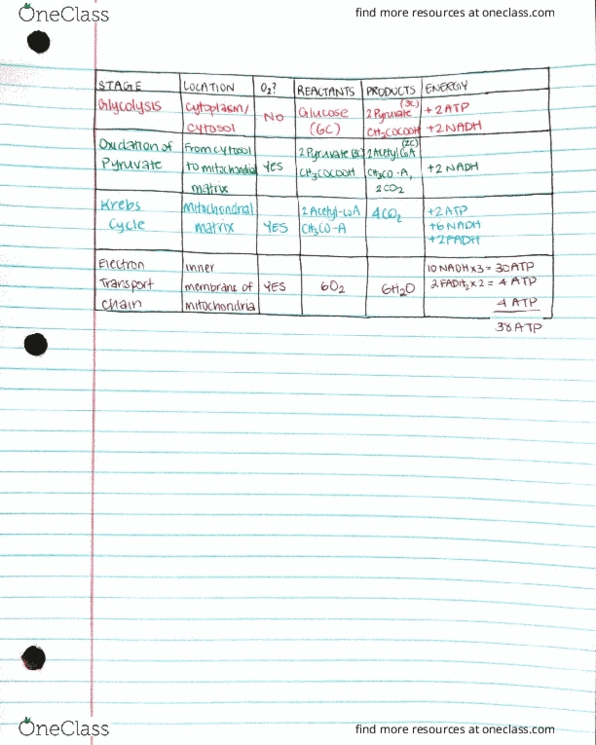 OneClass
find more resources at oneclass.com
STAGE LOCATION O₂? REACTANTS PRODUCTS ENERGY
Glycolysis cytoplasm/ cytosol NO Glucose (6C) 2 Pyruvate (3C) CH₃COCOOH +2 ATP +2 NADH
Oxidation of Pyruvate From cytosol to mitochondrial matrix YES 2 Pyruvate (3C) CH₃COCOOH 2 Acetyl CoA (2C) CH₃CO-A, 2CO₂ +2 NADH
Krebs Cycle Mitochondrial matrix YES 2 Acetyl-CoA CH₃CO-A 4CO₂ +2 ATP +6 NADH +2 FADH
Electron Transport chain inner membrane of mitochondria YES 6O₂ 6H₂O 10 NADH x 3 = 30 ATP 2 FADH₂ x 2 = 4 ATP 4 ATP
38 ATP
OneClass
find more resources at oneclass.com